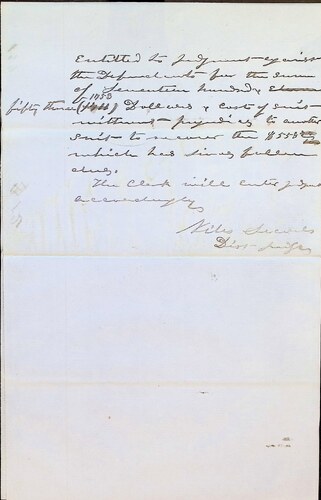 entitled to judgment against
the Defendants for the sum
of Seventeen hundred &
fifty three (1753) Dollars & costs of suit
without prejudice to another
suit to recover the $553
which has since fallen
due.
The Clerk will enter judgt
accordingly
Niles Searls
Dist Judge